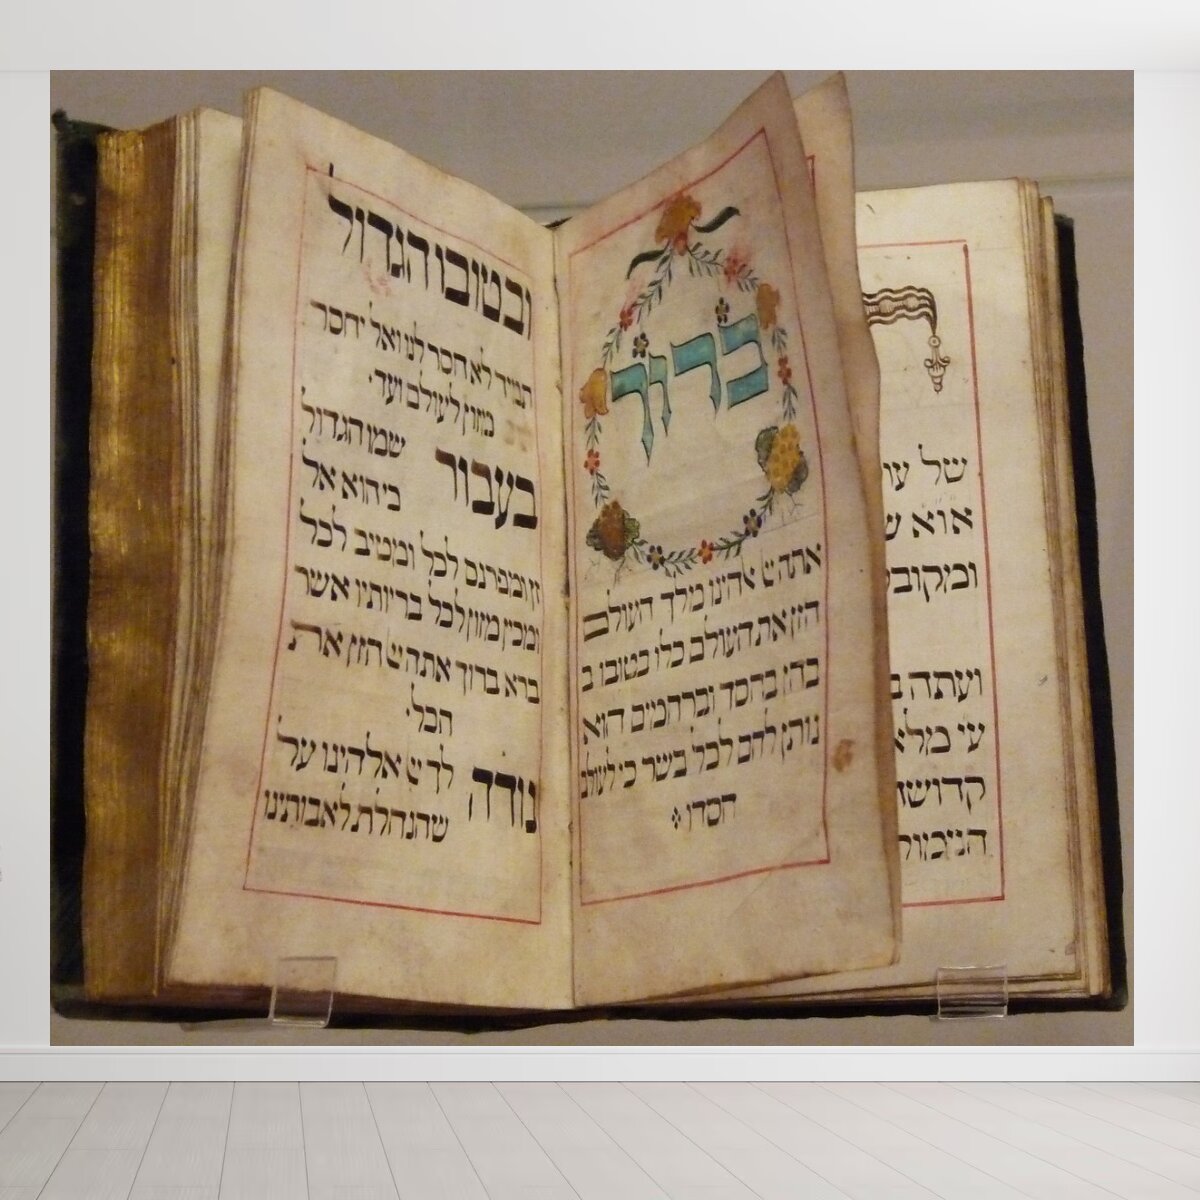 של
ועתה
ברוך
אתה אלהינו מלך העולם
הזן את העולם כלו בטובו ב
בחן בחסד וברחמים הוא
נותן לחם לכל בשר כי לעולם
חסדו
ובטובו הגדול
תמיד לא חסר לנו ואל יחסר
מזון לעולם ועד׃
בעבור שמו הגדול
כי הוא אל
זן ומפרנס לכל ומטיב לכל
ומכין מזון לכל בריותיו אשר
ברא ברוך אתה הזן את
הכל׃
נודה לך אלהינו על
שהנחלת לאבותינו